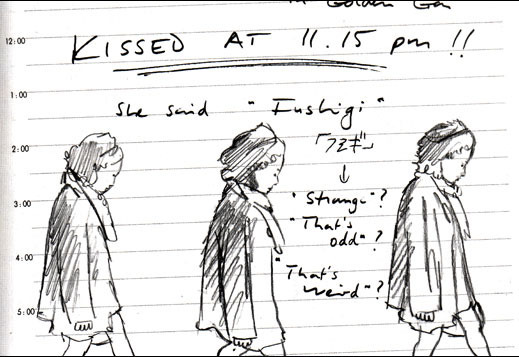 in Golden Gai
12:00
KISSED AT 11.15 pm !!
1:00
She said "Fushigi"
2:00
「フシギ」
3:00
"Strange"?
"That's
odd"?
4:00
"That's
weird"?
5:00